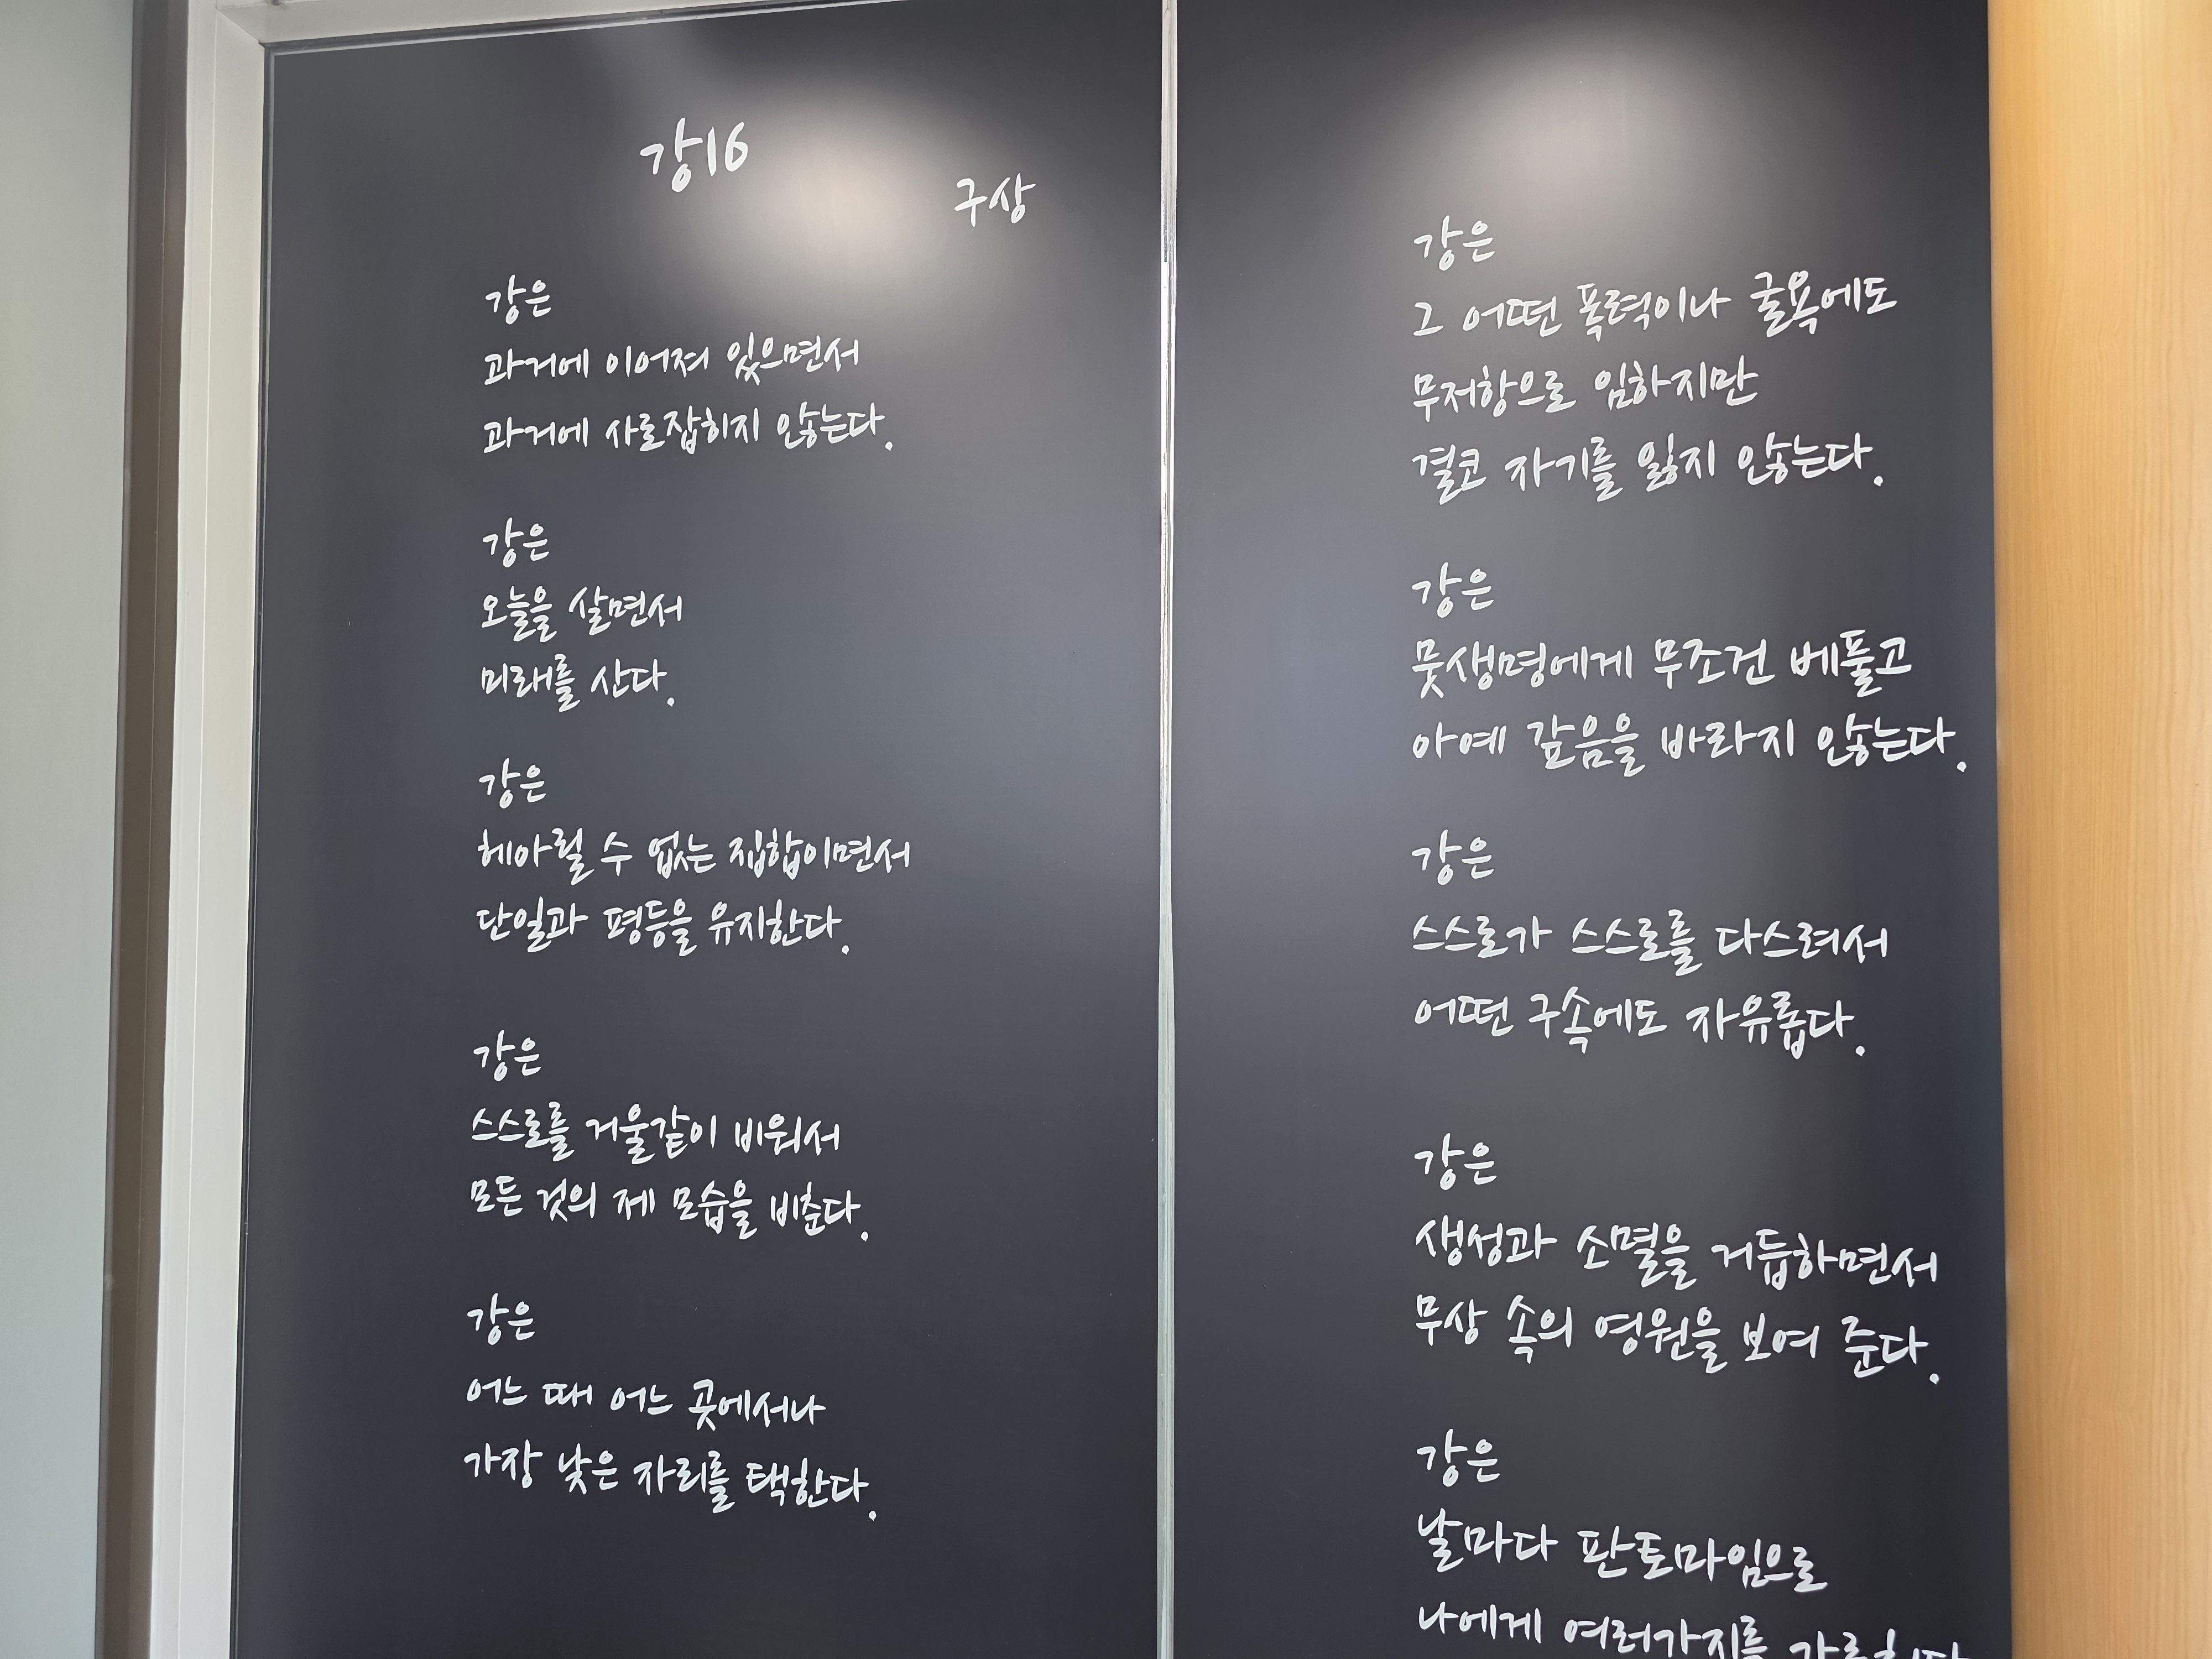 강16
구상
강은
과거에 이어져 있으면서
과거에 사로잡히지 않는다.
강은
오늘을 살면서
미래를 산다.
강은
헤아릴 수 없는 집합이면서
단일과 평등을 유지한다.
강은
스스로를 거울같이 비워서
모든 것의 제 모습을 비춘다.
강은
어느 때 어느 곳에서나
가장 낮은 자리를 택한다.
강은
그 어떤 폭력이나 굴욕에도
무저항으로 임하지만
결코 자기를 잃지 않는다.
강은
뭇생명에게 무조건 베풀고
아예 갚음을 바라지 않는다.
강은
스스로가 스스로를 다스려서
어떤 구속에도 자유롭다.
강은
생성과 소멸을 거듭하면서
무상 속의 영원을 보여 준다.
강은
날마다 판토마임으로
나에게 여러가지를